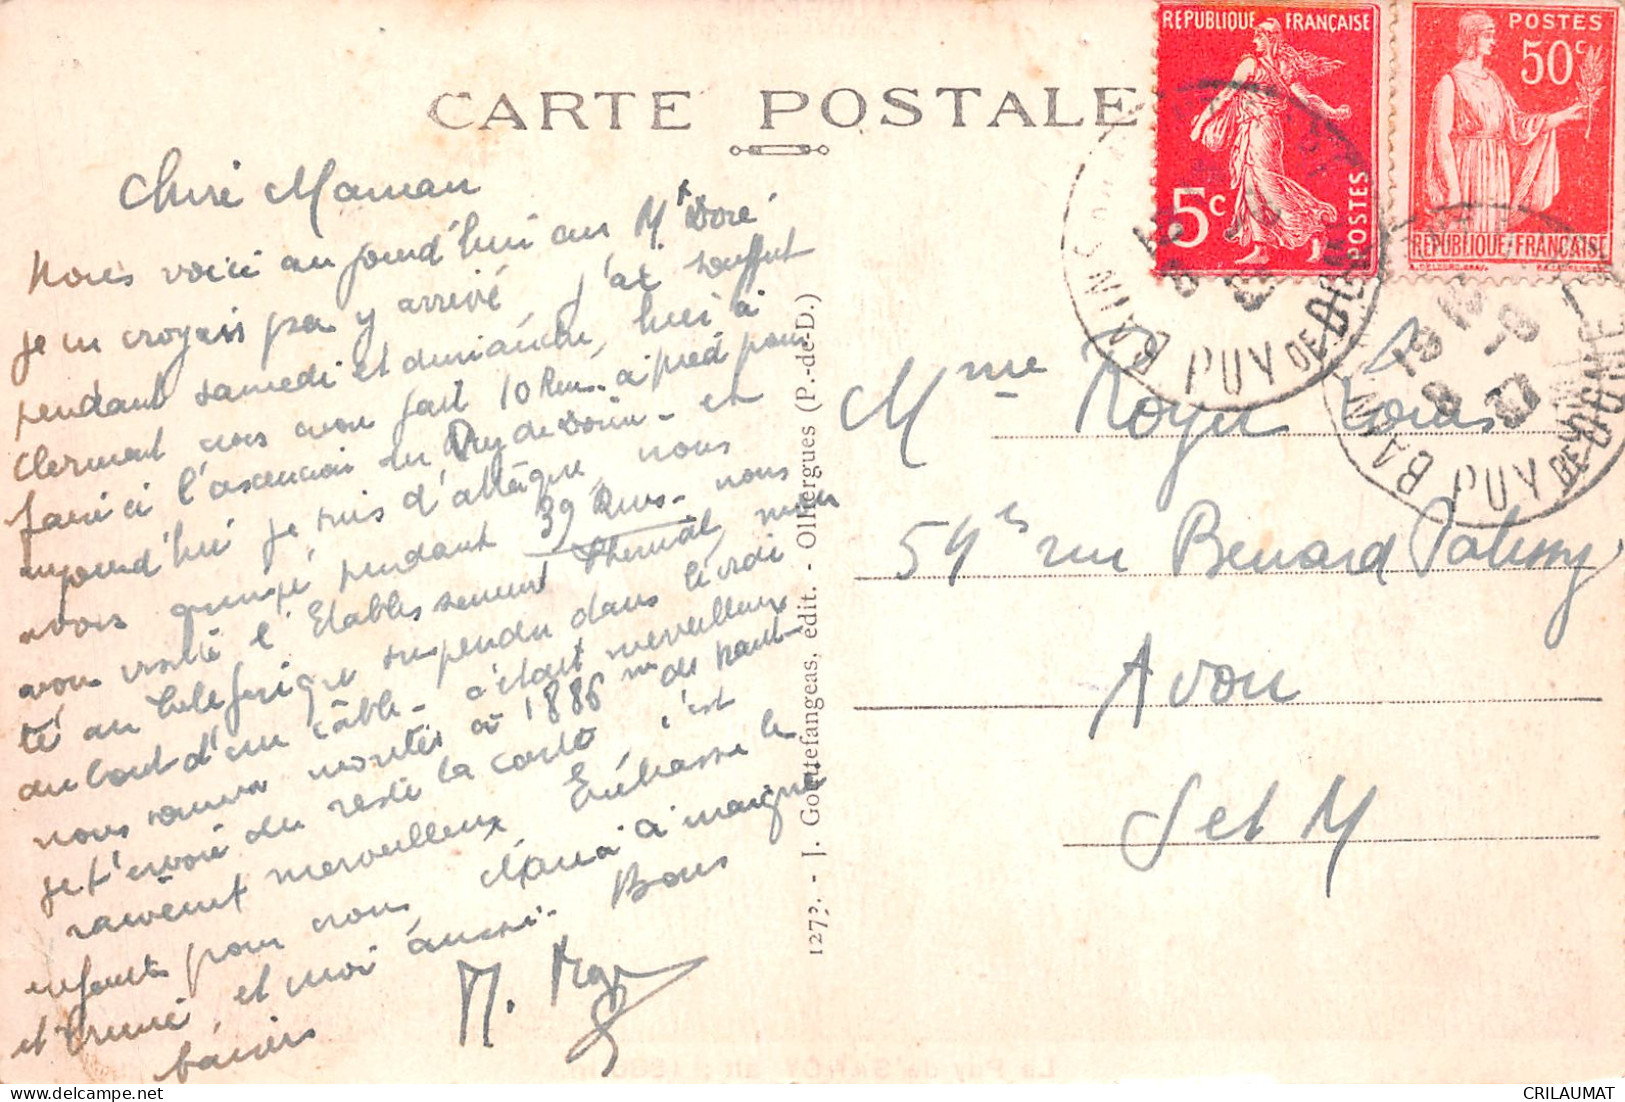 CARTE POSTALE
REPUBLIQUE FRANÇAISE
5c
POSTES
POSTES
50c
REPUBLIQUE FRANÇAISE
PUY DE DOME
PUY DE DOME
Maman
Nous voici aujourd'hui au Mt Dore
je ne croyais pas y arriver, j'ai souffert
pendant samedi et dimanche, hier à
Clermont nous avons fait 10 Kms à pied pour
faire l'ascension du Puy de Dôme - et
aujourd'hui je suis d'attaque, nous
avons grimpé pendant 39 Kms - nous
avons visité l'Etablissement thermal, monté
au téléférique suspendu dans le vide
au bout d'un câble - c'était merveilleux
nous sommes montés à 1886 m de haut -
je t'envoie du reste la carte c'est
vraiment merveilleux Embrasse le
enfants pour nous à maigrir
et moi aussi. Bons
baisers
M. Roy
Mme Royer Louis
54 bis rue Bernard Palissy
Avon
S et M
1273. - J. Goutefangeas, édit. - Olliergues (P.-de-D.)
Le Puy de SANCY alt. (1886 m.)
CRILAUMAT